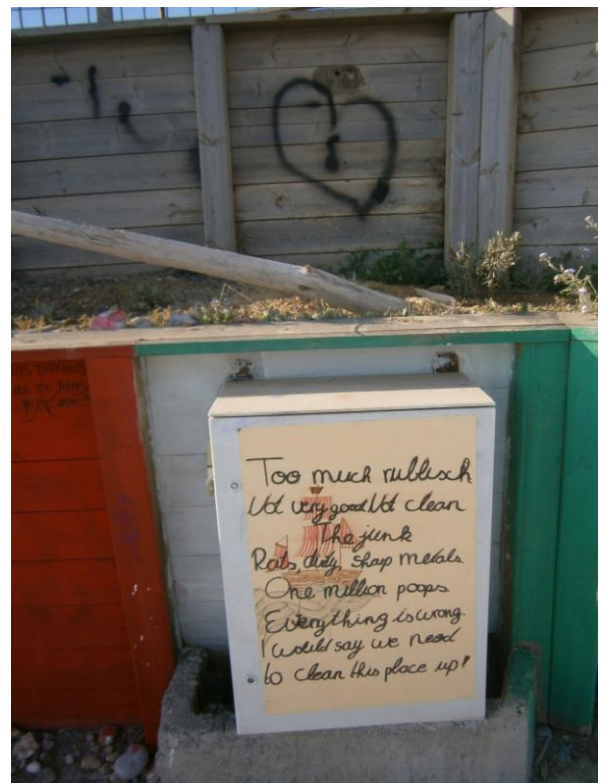 Too much rublisch
Not very good Not clean
The junk
Rats, dirty, sharp metals
One million poops
Everything is wrong.
I would say we need
to clean this place up!